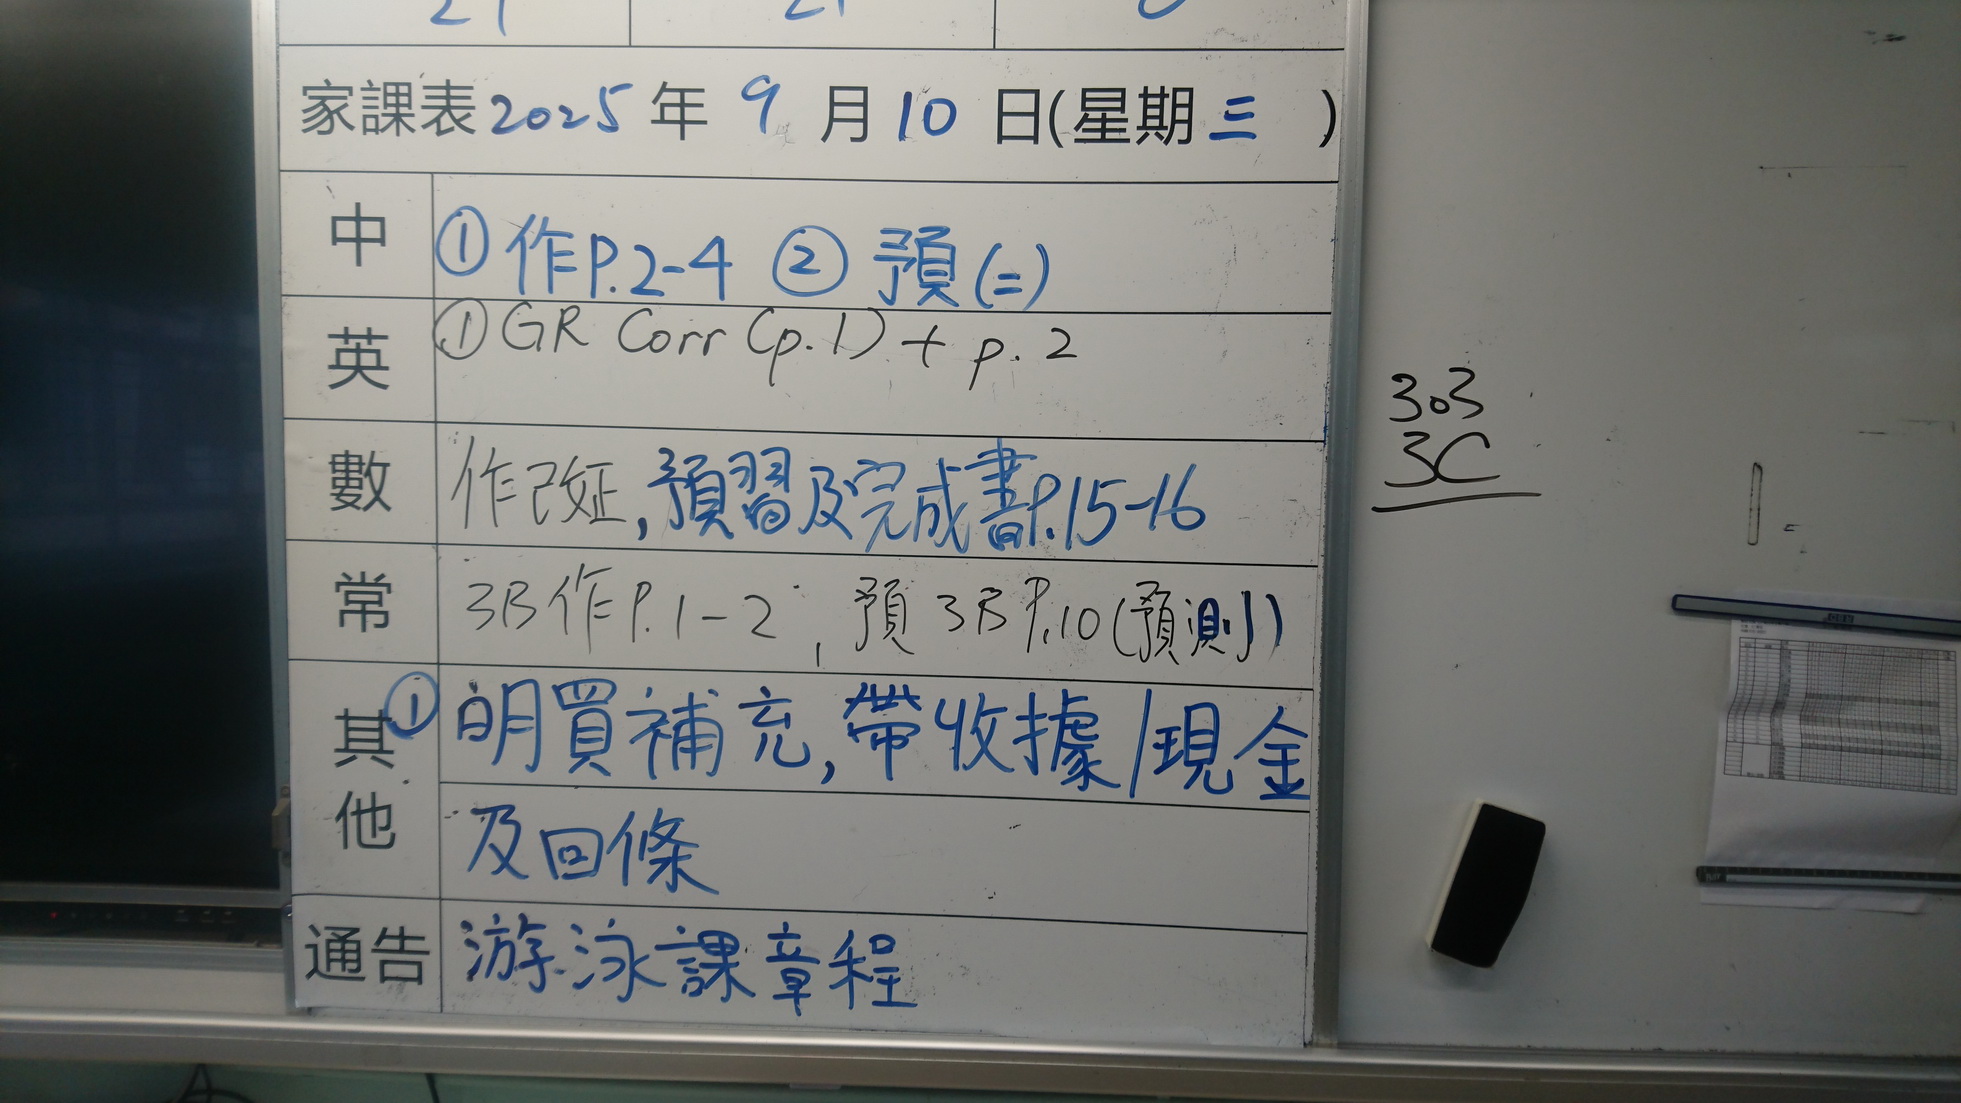 家課表2025年9月10日(星期三)
中 ①作P.2-4 ②預(二)
英 ①GR Corr (p.1) + p.2
數 作改正,預習及完成書P.15-16
常 3B作P.1-2,預3B P.10(預測)
其他 ①明買補充,帶收據/現金
及回條
通告 游泳課章程
303
3C